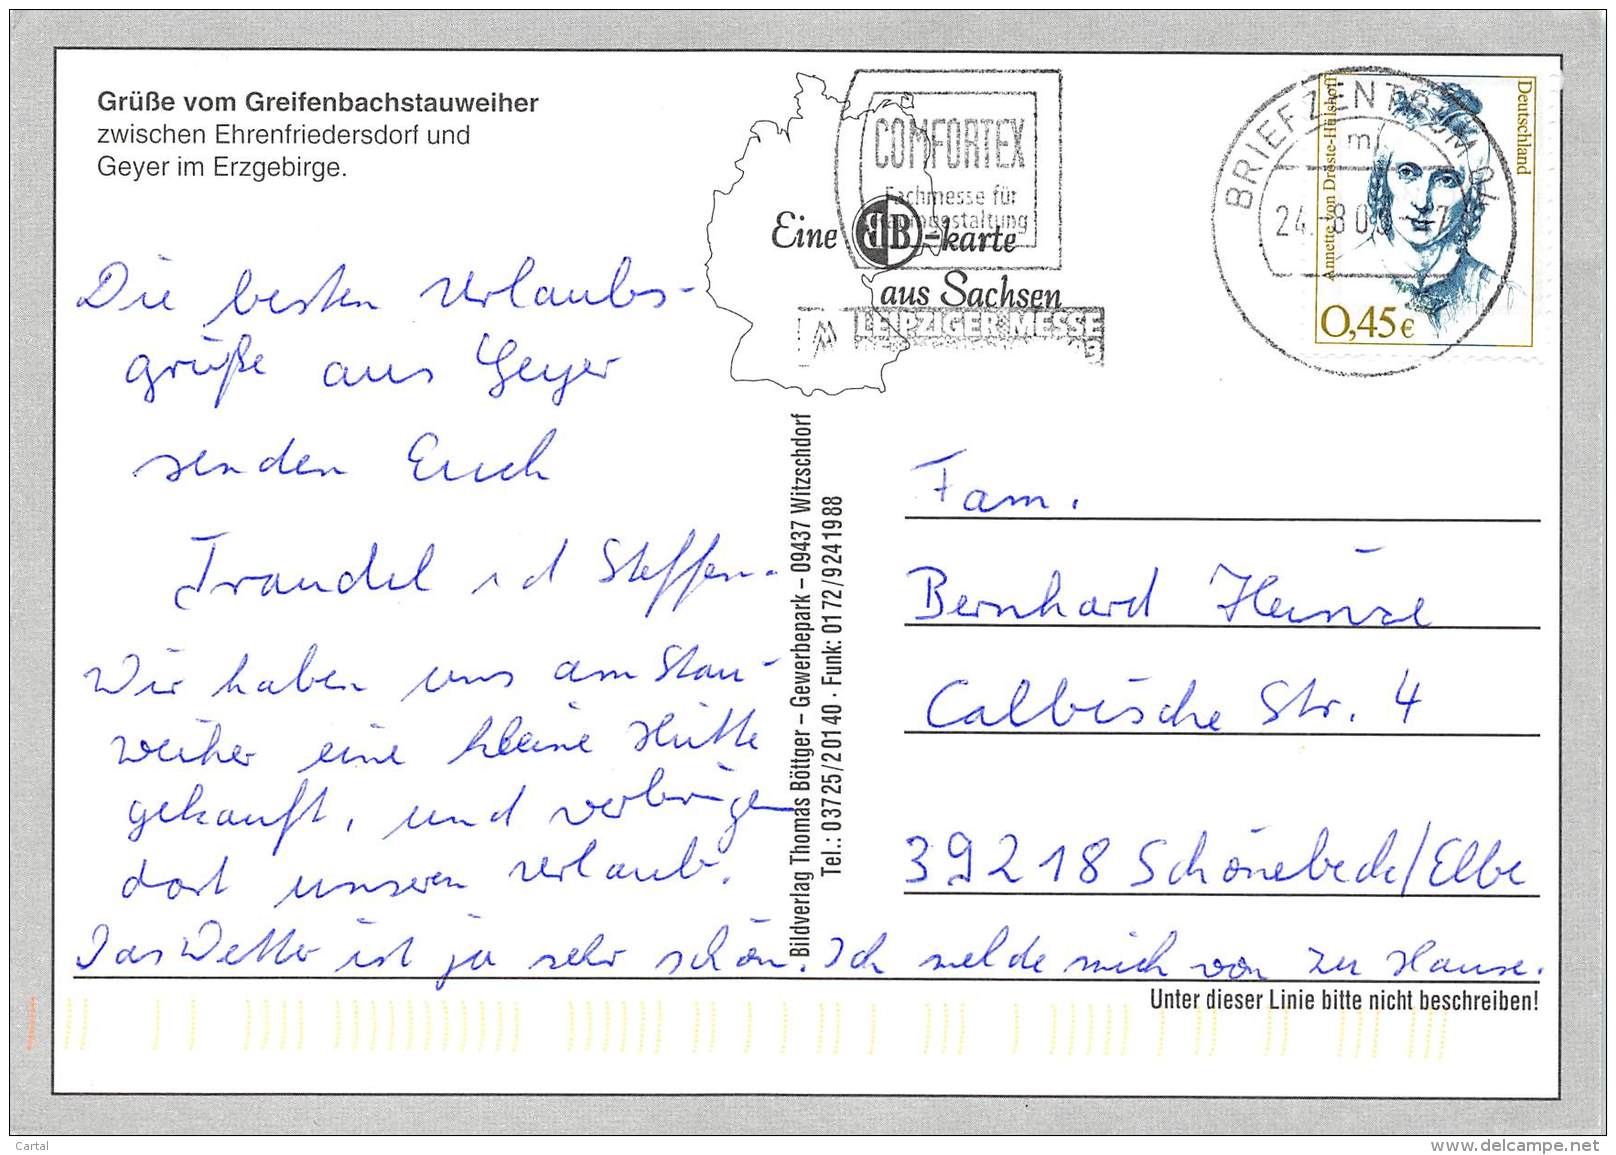 Grüße vom Greifenbachstauweiher
zwischen Ehrenfriedersdorf und
Geyer im Erzgebirge.
COMFORTEX
Fachmesse für
Eine BB-karte
aus Sachsen
LEIPZIGER MESSE
BRIEFZENTRUM
Deutschland
Annette von Droste-Hülshoff
0,45€
Die besten Urlaubs-
grüße aus Geyer
senden Euch
Traudel und Steffen.
Wir haben uns am Stau-
weiher eine kleine Hütte
gekauft, und verbringen
dort unseren Urlaub.
Das Wetter ist ja sehr schön. Ich melde mich von zu Hause.
Bildverlag Thomas Böttger – Gewerbepark – 09437 Witzschdorf
Tel.: 03725/20140 · Funk: 0172/9241988
Fam.
Bernhard Heinze
Calbische Str. 4
39218 Schönebeck/Elbe
Unter dieser Linie bitte nicht beschreiben!
Cartal
www.delcampe.net